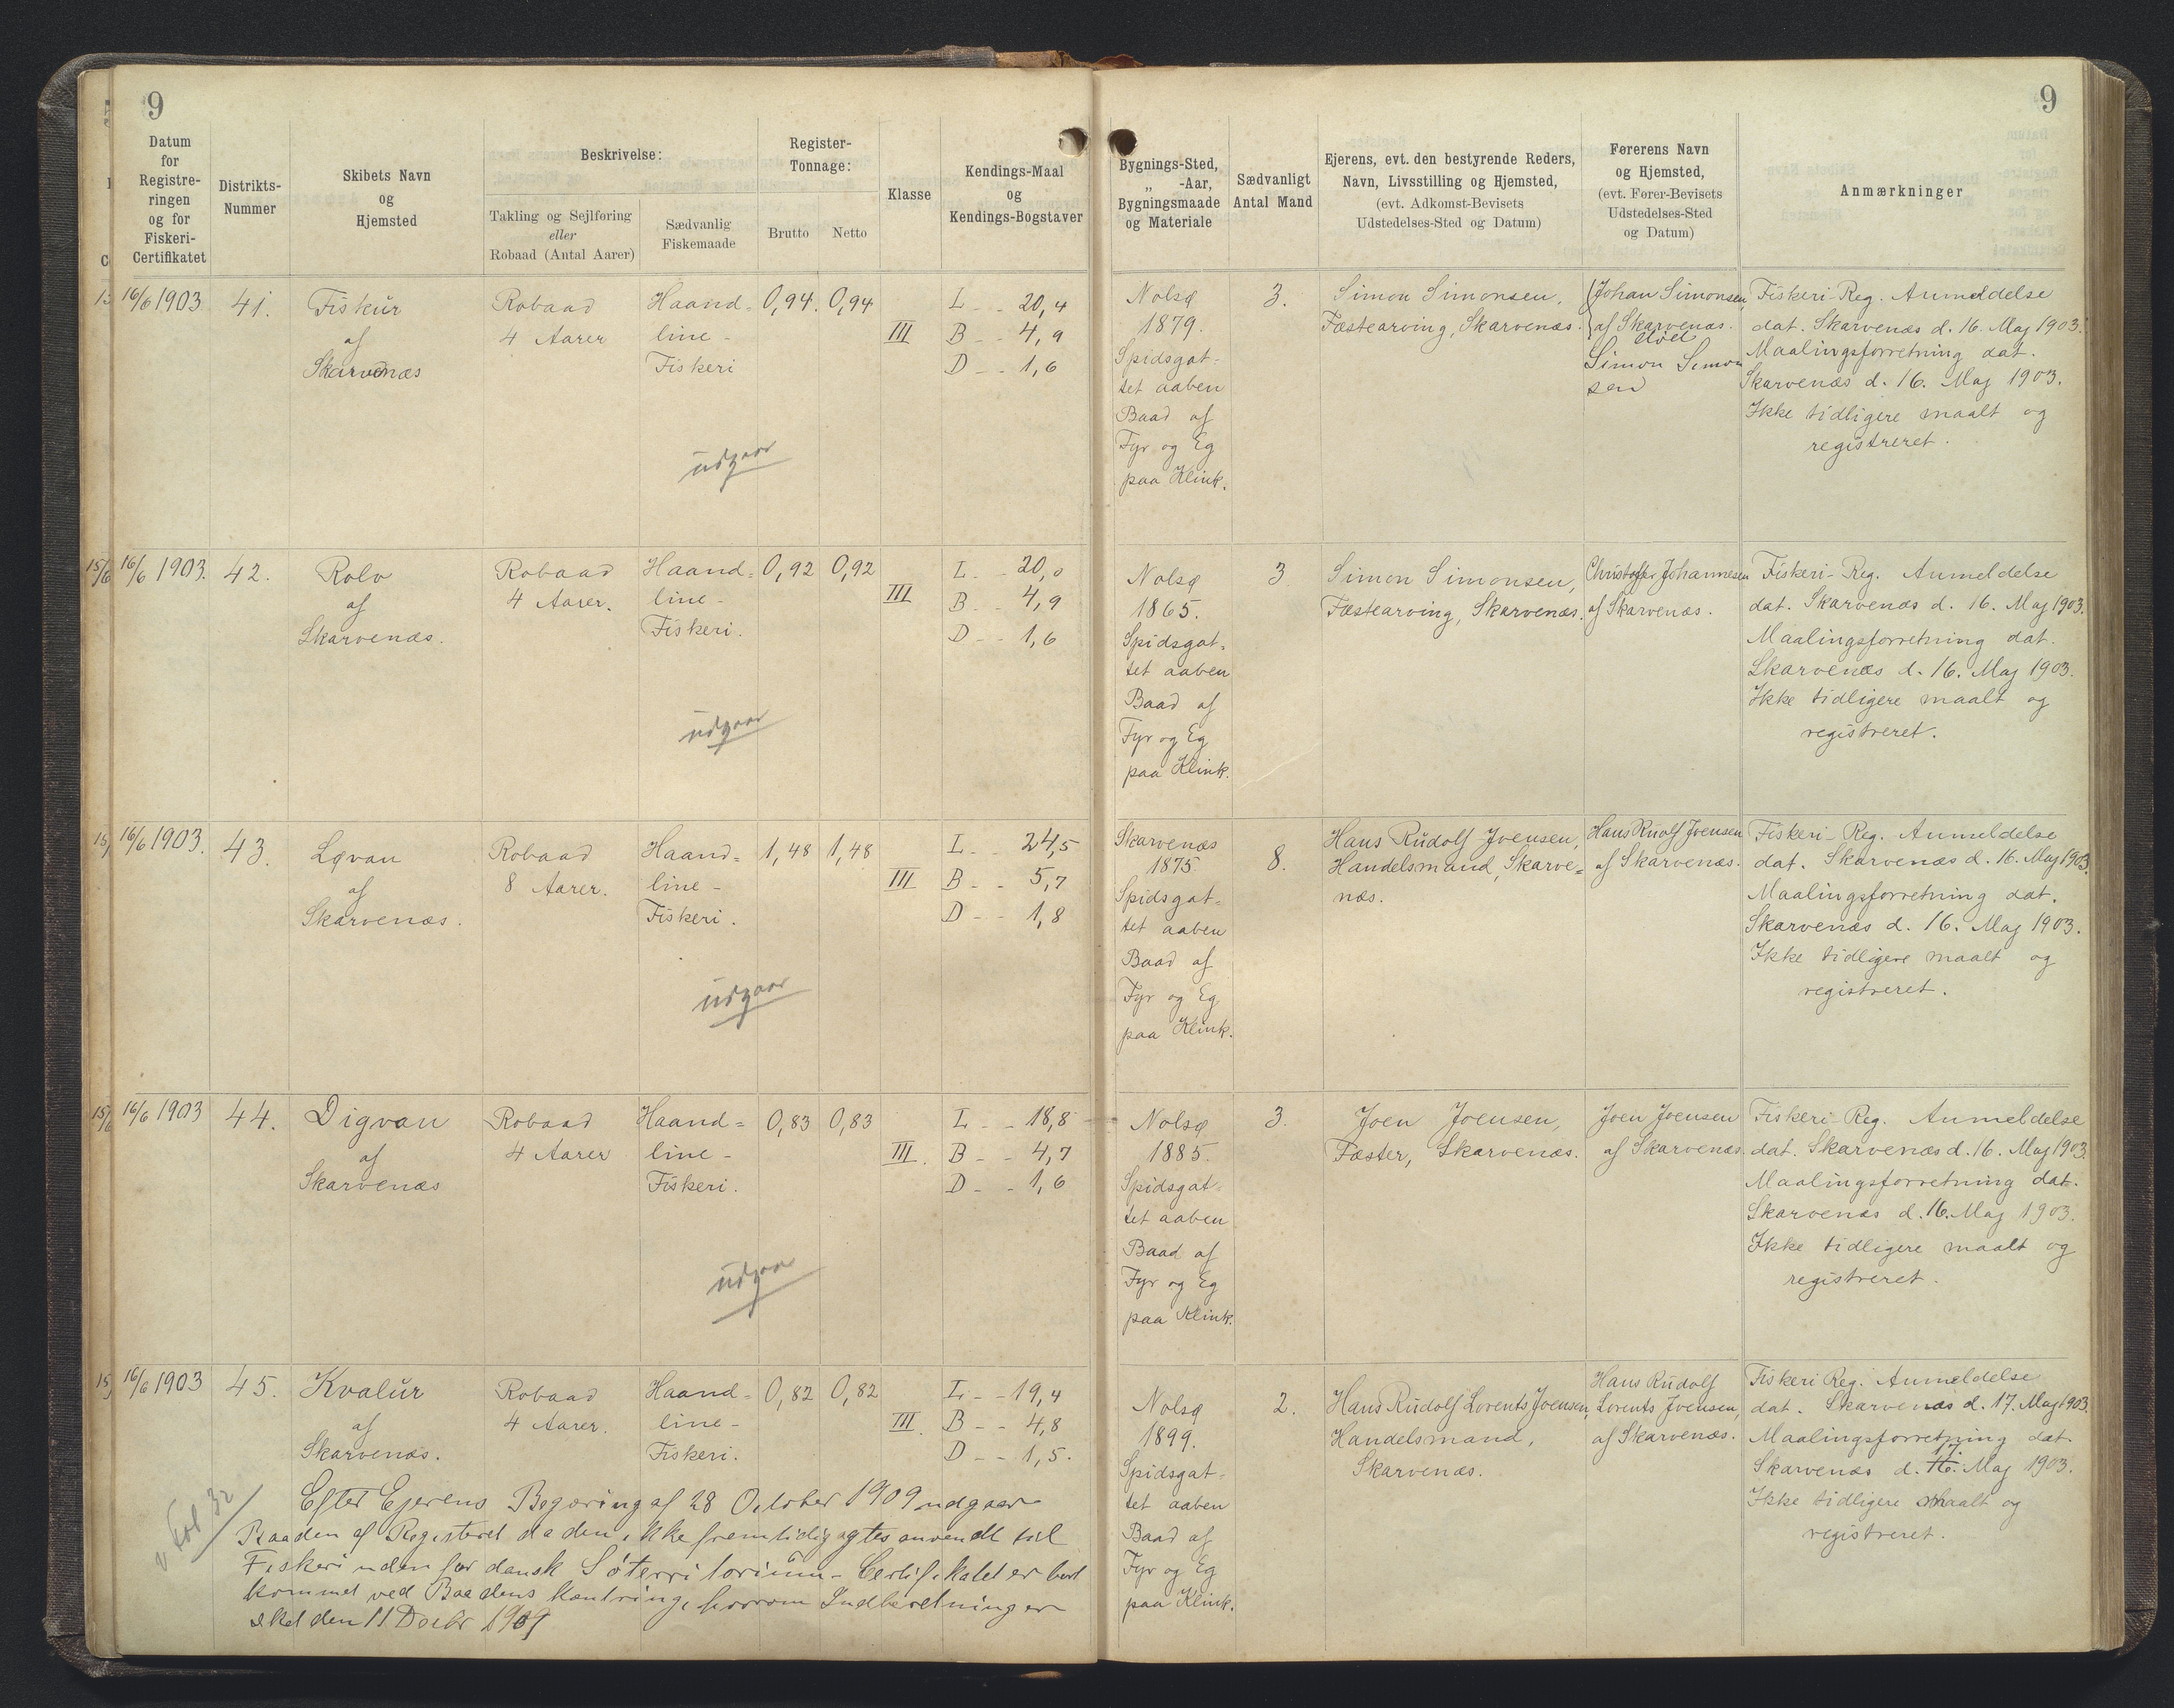 9
9
Datum
for
Registre-
ringen
og for
Fiskeri-
Certifikatet
Distrikts-
Nummer
Skibets Navn
og
Hjemsted
Beskrivelse:
Takling og Sejlføring
eller
Robaad (Antal Aarer)
Sædvanlig
Fiskemaade
Register-
Tonnage:
Brutto
Netto
Klasse
Kendings-Maal
og
Kendings-Bogstaver
Bygnings-Sted,
„ -Aar,
Bygningsmaade
og Materiale
Sædvanligt
Antal Mand
Ejerens, evt. den bestyrende Reders,
Navn, Livsstilling og Hjemsted,
(evt. Adkomst-Bevisets
Udstedelses-Sted og Datum)
Førerens Navn
og Hjemsted,
(evt. Fører-Bevisets
Udstedelses-Sted
og Datum)
Anmærkninger
16/6 1903
41.
Fiskur
af
Skarvenæs
Robaad
4 Aarer
Haand-
line-
Fiskeri
0,94.
0,94
III
L - - 20,4
B - - 4,9
D - - 1,6
Nolsø
1879.
Spidsgat-
tet aaben
Baad af
Fyr og Eg
paa Klink.
3.
Simon Simonsen,
Fæstearving, Skarvenæs.
Johan Simonsen,
af Skarvenæs.
død
Simon Simon
sen
Fiskeri-Reg. Anmeldelse
dat. Skarvenæs d. 16. Maj 1903.
Maalingsforretning dat.
Skarvenæs d. 16. Maj 1903.
Ikke tidligere maalt og
registreret.
udgaar
15/6 16/6 1903.
42.
Rolv
af
Skarvenæs.
Robaad
4 Aarer.
Haand-
line-
Fiskeri.
0,92
0,92
III
L - - 20,0
B - - 4,9
D - - 1,6
Nolsø
1865.
Spidsgat-
tet aaben
Baad af
Fyr og Eg
paa Klink.
3
Simon Simonsen,
Fæstearving, Skarvenæs.
Christoffer Johannesen
af Skarvenæs.
Fiskeri-Reg. Anmeldelse
dat. Skarvenæs d. 16. Maj 1903.
Maalingsforretning dat.
Skarvenæs d. 16. Maj 1903.
Ikke tidligere maalt og
registreret.
udgaar
16/6 1903.
43.
Løvan
af
Skarvenæs.
Robaad
8 Aarer.
Haand-
line-
Fiskeri.
1,48
1,48
III
L - - 24,5
B - - 5,7
D - - 1,8
Skarvenæs
1875
Spidsgat-
tet aaben
Baad af
Fyr og Eg
paa Klink.
8.
Hans Rudolf Joensen,
Handelsmand, Skarve-
næs.
Hans Ruolf Joensen
af Skarvenæs.
Fiskeri-Reg. Anmeldelse
dat. Skarvenæs d. 16. Maj 1903.
Maalingsforretning dat.
Skarvenæs d. 16. Maj 1903.
Ikke tidligere maalt og
registreret.
udgaar
16/6 1903
44.
Digvan
af
Skarvenæs
Robaad
4 Aarer
Haand-
line-
Fiskeri.
0,83
0,83
III.
L - - 18,8
B - - 4,7
D - - 1,6
Nolsø
1885.
Spidsgat-
tet aaben
Baad af
Fyr og Eg
paa Klink.
3.
Joen Joensen,
Fæster, Skarvenæs.
Joen Joensen
af Skarvenæs.
Fiskeri-Reg. Anmeldelse
dat. Skarvenæs d. 16. Maj 1903.
Maalingsforretning dat.
Skarvenæs d. 16. Maj 1903.
Ikke tidligere maalt og
registreret.
udgaar
16/6 1903
45.
Kvalur
af
Skarvenæs.
Robaad
4 Aarer.
Haand-
line-
Fiskeri.
0,82
0,82
III.
L - - 19,4
B - - 4,8
D - - 1,5.
Nolsø
1899.
Spidsgat-
tet aaben
Baad af
Fyr og Eg
paa Klink.
2.
Hans Rudolf Lorents Joensen,
Handelsmand,
Skarvenæs.
Hans Rudolf
Lorents Joensen,
af Skarvenæs.
Fiskeri Reg. Anmeldelse
dat. Skarvenæs d. 17. Maj 1903.
Maalingsforretning dat.
17.
Skarvenæs d. 16. Maj 1903.
Ikke tidligere maalt og
registreret.
v Fol 32
Efter Ejerens Begæring af 28 October 1909 udgaar
Baaden af Registeret da den ikke fremtidig agtes anvendt til
Fiskeri uden for dansk Söterritorium - Certifikatet er bort
kommet ved Baadens kæntring, hvorom Indberetning er
sket den 11 Decbr 1909